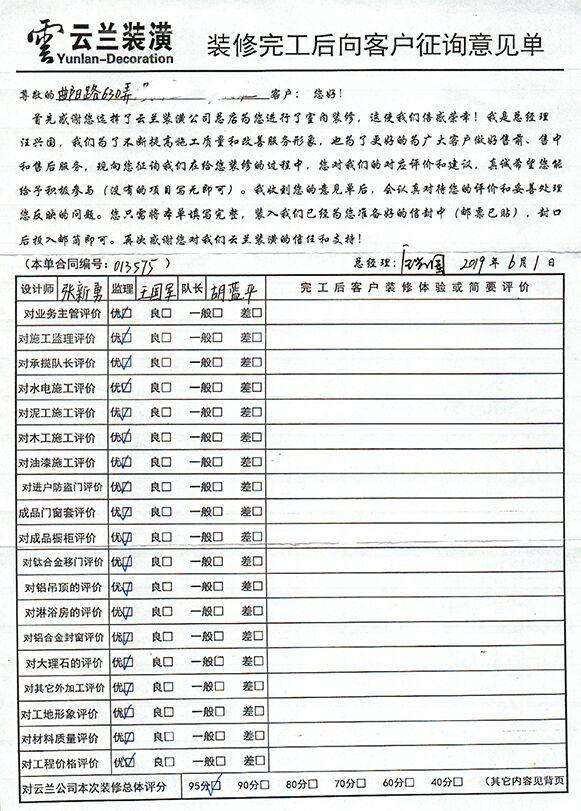 雲 云兰装潢
Yunlan-Decoration
装修完工后向客户征询意见单
尊敬的 曲阳路630弄 客户：您好！
首先感谢您选择了云兰装潢公司总店为您进行了室内装修，这使我们倍感荣幸！我是总经理
汪兴国，我们为了不断提高施工质量和改善服务形象，也为了更好的为广大客户做好售前、售中
和售后服务，现向您征询我们在给您装修的过程中，您对我们的对应评价和建议，真诚希望您能
给予积极参与（没有的项目写无即可）。我收到您的意见单后，会认真对待您的评价和妥善处理
您反映的问题。您只需将本单填写完整，装入我们已经为您准备好的信封中（邮票已贴），封口
后投入邮筒即可。再次感谢您对我们云兰装潢的信任和支持！
（本单合同编号：013575） 总经理：汪兴国 2019年6月1日
设计师 张新勇 监理 王国军 队长 胡蓝平 完工后客户装修体验或简要评价
对业务主管评价 优☑ 良□ 一般□ 差□
对施工监理评价 优☑ 良□ 一般□ 差□
对承揽队长评价 优☑ 良□ 一般□ 差□
对水电施工评价 优☑ 良□ 一般□ 差□
对泥工施工评价 优☑ 良□ 一般□ 差□
对木工施工评价 优☑ 良□ 一般□ 差□
对油漆施工评价 优☑ 良□ 一般□ 差□
对进户防盗门评价 优☑ 良□ 一般□ 差□
成品门窗套评价 优☑ 良□ 一般□ 差□
对成品橱柜评价 优☑ 良□ 一般□ 差□
对钛合金移门评价 优☑ 良□ 一般□ 差□
对铝吊顶的评价 优☑ 良□ 一般□ 差□
对淋浴房的评价 优☑ 良□ 一般□ 差□
对铝合金封窗评价 优☑ 良□ 一般□ 差□
对大理石的评价 优☑ 良□ 一般□ 差□
对其它外加工评价 优☑ 良□ 一般□ 差□
对工地形象评价 优☑ 良□ 一般□ 差□
对材料质量评价 优☑ 良□ 一般□ 差□
对工程价格评价 优☑ 良□ 一般□ 差□
对云兰公司本次装修总体评分 95分☑ 90分□ 80分□ 70分□ 60分□ 40分□ （其它内容见背页